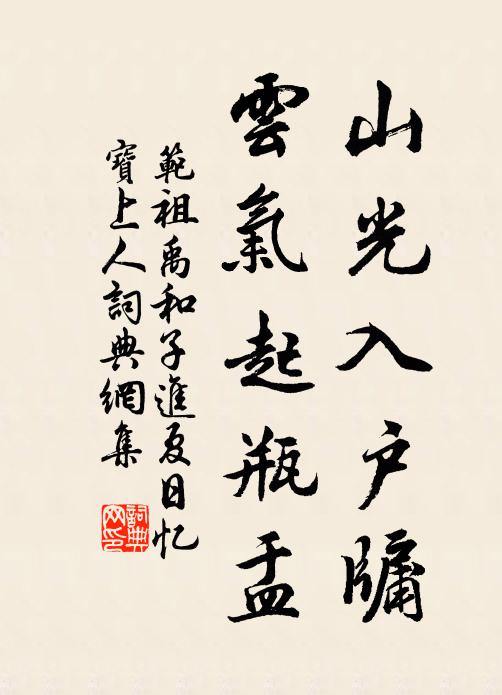 山光入户牖
雲氣起瓶盂
範祖禹和子進夏日忆
寶上人詞典網集
詞典网印